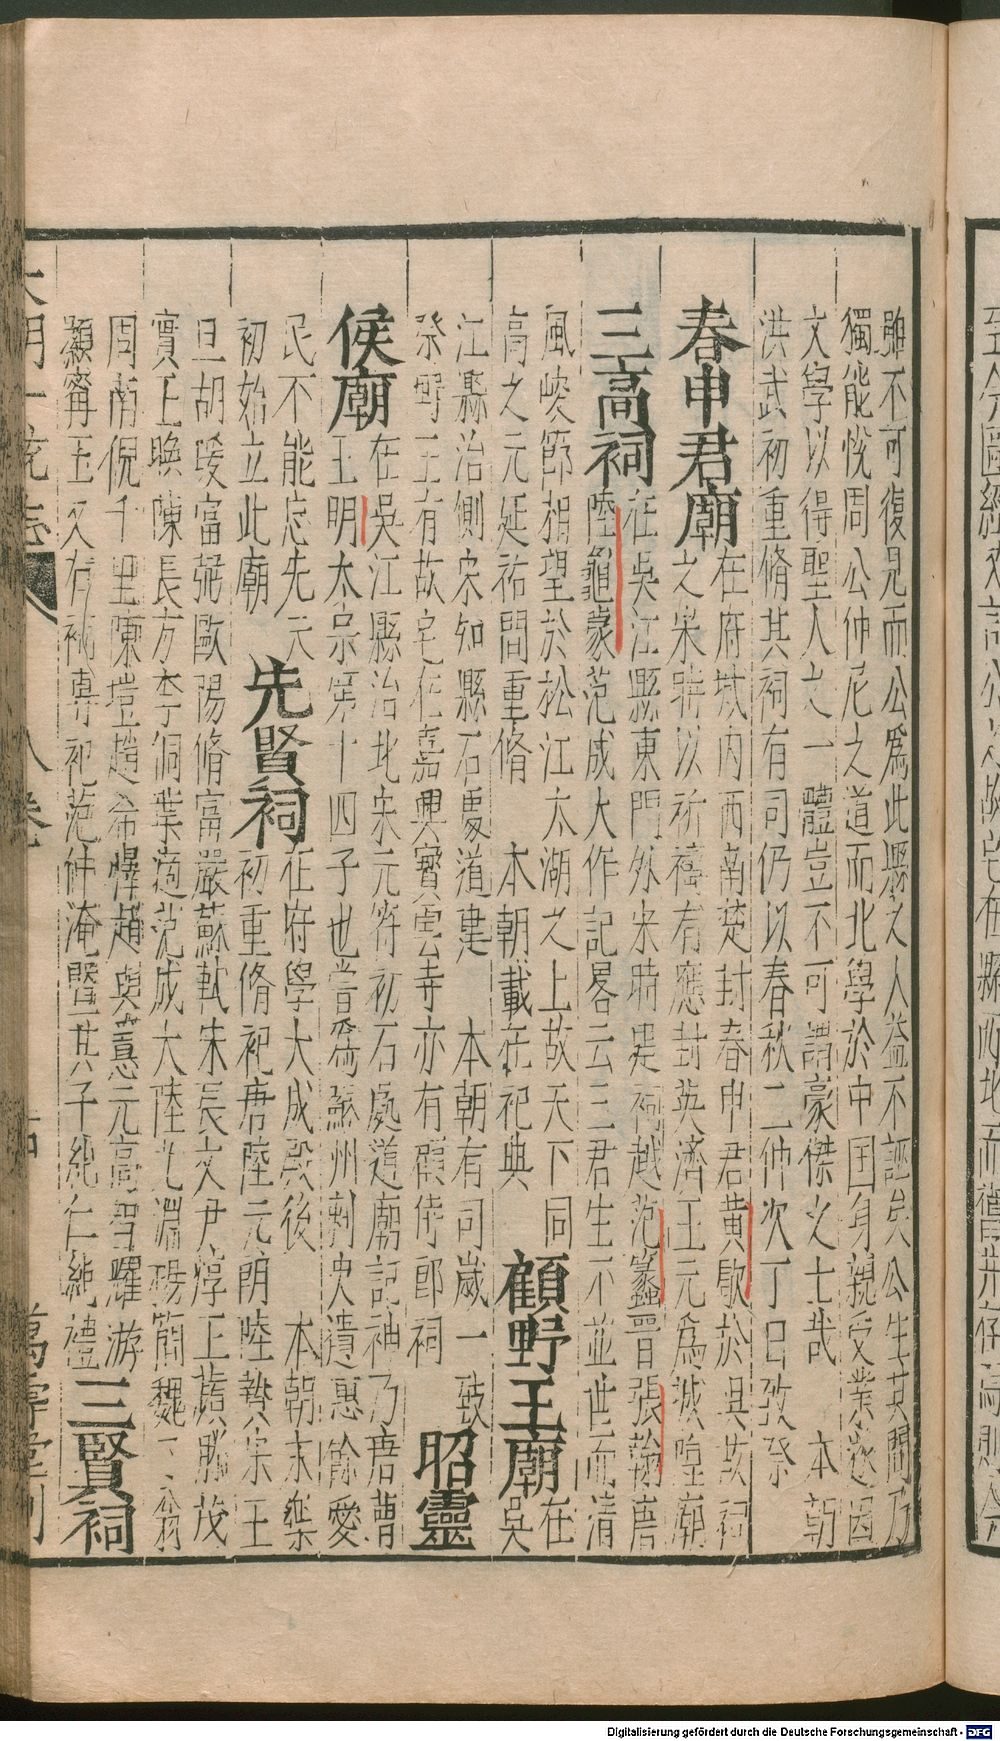 雖不可復見而公爲此縣之人益不誣矣公生其間乃
獨能悅周公仲尼之道而北學於中国身親受業遂因
文學以得聖人之一體豈不可謂豪傑之士哉 本朝
洪武初重脩其祠有司仍以春秋二仲次丁日致祭
春申君廟
在府城内西南楚封春申君黃歇於吳故祠
之果時以祈禱有應封英濟王元爲城隍廟
三高祠
在吳江縣東門外宋時建祠越范蠡晉張翰唐
陸龜蒙范成大作記畧云三君生不並世而清
風峻節相望於松江太湖之上故天下同
高之元延祐間重脩 本朝載在祀典
顧野王廟
在
吳
江縣治側宋知縣石處道建 本朝有司歲一致
祭野王有故宅在嘉興寳雲寺亦有顧侍郎祠
昭靈
侯廟
在吳江縣治北宋元符初石處道廟記神乃唐曹
王明太宗第十四子也嘗爲蘇州刺史遺惠餘愛
民不能忘先元
初始立此廟
先賢祠
在府學大成殿後 本朝末樂
初重脩祀唐陸元朗陸贄宋王
旦胡瑗富弼歐陽脩富嚴蘇軾朱長文尹焞王蘋滕茂
實王㬇陳長方李侗葉適范成大陸九淵楊簡魏了翁
周南倪千里陳塏趙希懌趙與𥲅元高智耀游
顯甯玉又有祠專祀范仲淹暨其子純仁純禮
三賢祠
大明一統志
八卷
十四
萬壽堂刊
Digitalisierung gefördert durch die Deutsche Forschungsgemeinschaft - DFG